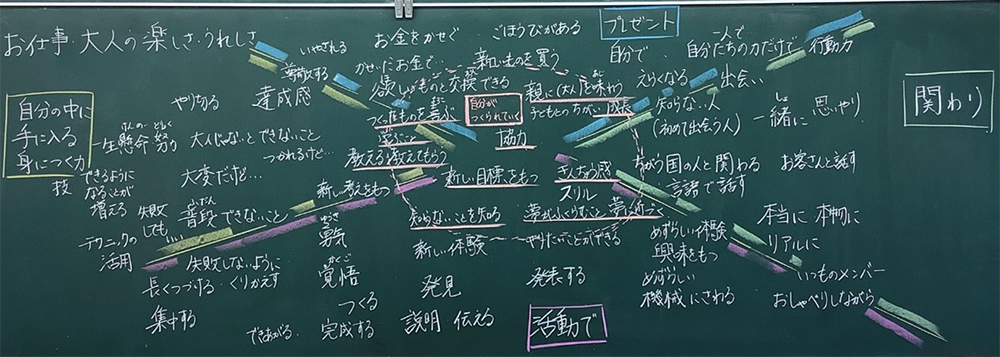 お仕事・大人の楽しさ・うれしさ
いやされる
お金をかせぐ
ごほうびがある
プレゼント
かせいだお金で…
新しいものを買う
自分で
一人で
自分たちの力だけで
行動力
欲しいものと交換できる
親に(大人)を味わう
えらくなる
出会い
関わり
自分の中に
手に入る
身につく力
やり切る
達成感
つくったものを喜ぶ
自分が
つくられていく
子どもとのちがい
成長
知らない人
(初めて出会う人)
一緒に
思いやり
一生懸命
努力
大人じゃないとできないこと
つかれるけど…
学ぶこと
協力
教える
教えてもらう
技
できるように
なることが
増える
大変だけど…
新しい考えをもつ
新しい目標をもつ
きんちょう感
スリル
ちがう国の人と関わる
言語で話す
お客さんと話す
失敗
しても…
普段できないこと
知らないことを知る
夢がふくらむこと
夢に近づく
テクニックの
活用
失敗しないように
勇気
新しい体験
やりたいことができる
めずらしい体験
興味をもつ
本当に
本物に
リアルに
長くつづける
くりかえす
覚悟
発見
発表する
めずらしい
機械にさわる
いつものメンバー
おしゃべりしながら
集中する
できあがる
つくる
完成する
説明
伝える
活動で